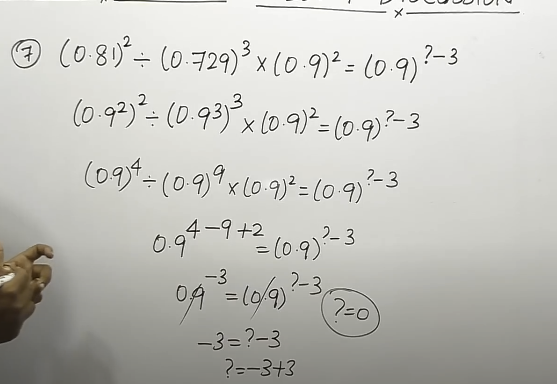 ⑦ (0.81)² ÷ (0.729)³ × (0.9)² = (0.9)^?-3
(0.9²)² ÷ (0.9³)³ × (0.9)² = (0.9)^?-3
(0.9)⁴ ÷ (0.9)⁹ × (0.9)² = (0.9)^?-3
0.9^4-9+2 = (0.9)^?-3
0.9^-3 = (0.9)^?-3
?=0
-3=?-3
?=-3+3